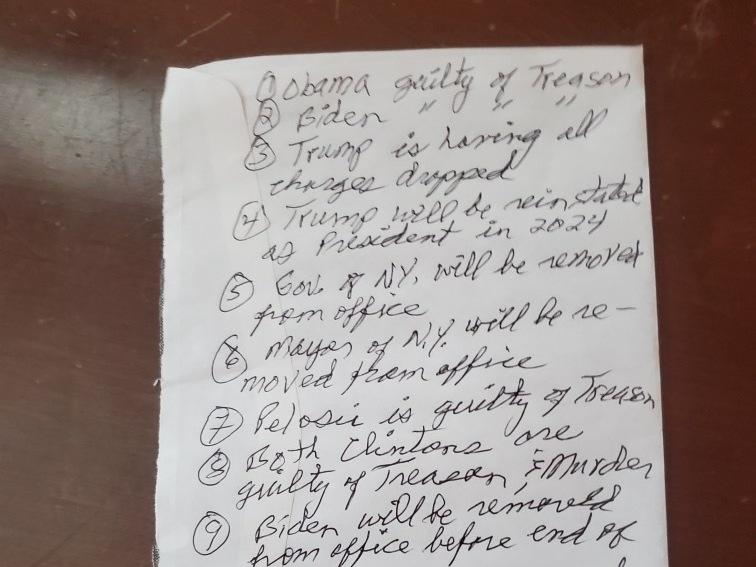 ① Obama guilty of Treason
② Biden " " "
③ Trump is having all
charges dropped
④ Trump will be reinstated
as President in 2024
⑤ Gov. of NY. will be removed
from office
⑥ Mayor of N.Y. will be re-
moved from office
⑦ Pelosii is guilty of Treason
⑧ Both Clintons are
guilty of Treason, & Murder
⑨ Biden will be removed
from office before end of